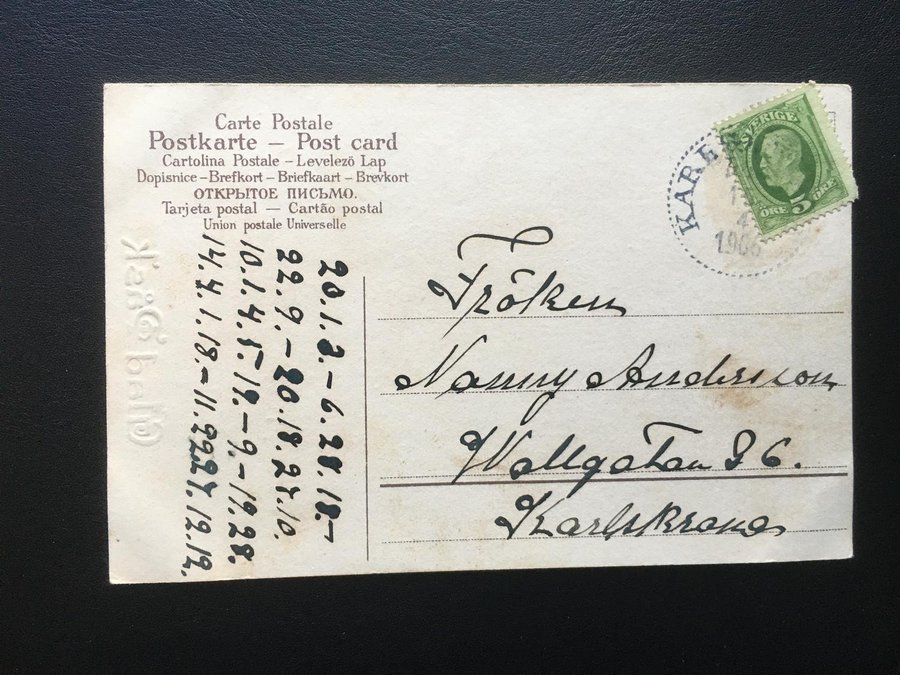 Carte Postale
Postkarte — Post card
Cartolina Postale – Levelező Lap
Dopisnice – Brefkort – Briefkaart – Brevkort
ОТКРЫТОЕ ПИСЬМО.
Tarjeta postal — Cartão postal
Union postale Universelle
SVERIGE
ÖRE 5 ÖRE
4
1906
Fröken
Nanny Anderson
Wallgatan 36.
Karlskrona
20.1.2.–6.28.18.–
22.9.–20.18.27.10.
10.1.4.5.19.–9.–19.28.
14.4.1.18.–11.29.27.12.12.